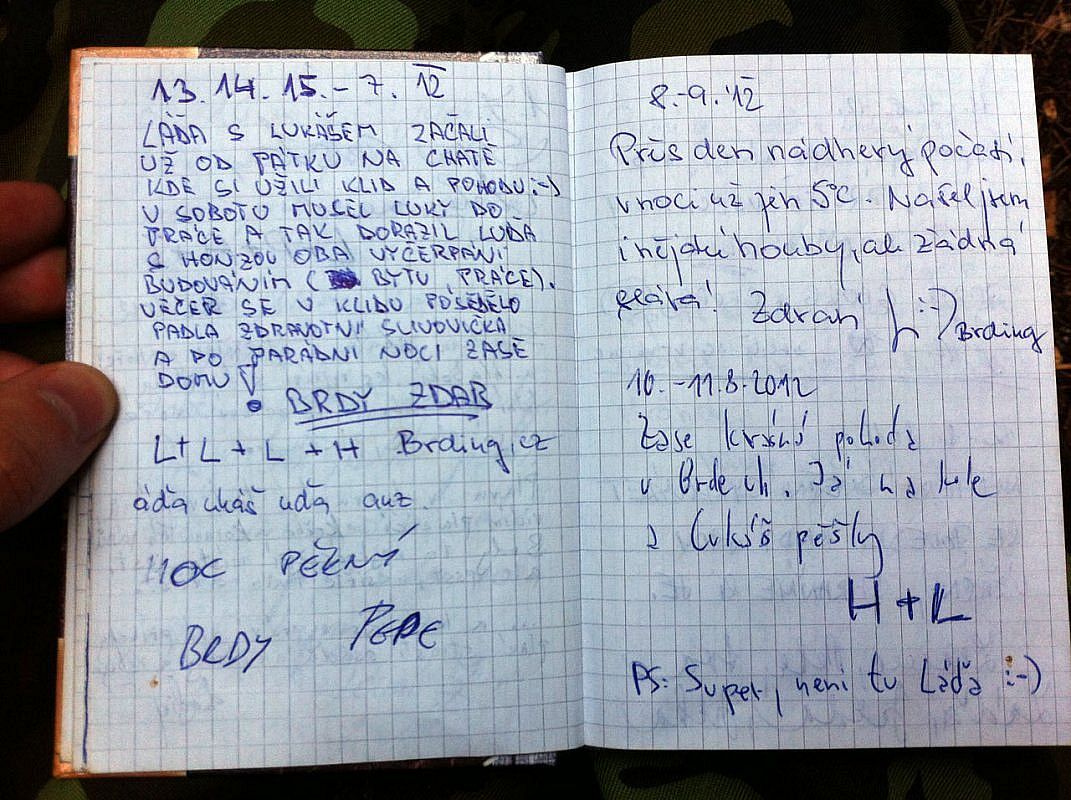 13. 14. 15. - 7. 12
LÁĎA S LUKÁŠEM ZAČALI
UŽ OD PÁTKU NA CHATĚ
KDE SI UŽILI KLID A POHODU :-)
V SOBOTU MUSEL LUKY DO
PRÁCE A TAK DORAZIL LUĎA
S HONZOU OBA VYČERPÁNI
BUDOVÁNÍM (BYTU, PRÁCE).
VEČER SE V KLIDU POSEDĚLO
PADLA ZDRAVOTNÍ SLIVOVIČKA
A PO PARÁDNÍ NOCI ZASE
DOMU!
BRDY ZDAR
L + L + L + H Brding.cz
áďa ukáš uďa
MOC PĚKNÝ
BRDY PEPE
8.-9. 12
den nádherý počasí,
v noci už jen 5°C. Našel jsem
i nějaké houby, ale žádná
sláva! Zdraví L :-) Brding
10. - 11.8.2012
Zase krásná pohoda
v Brdech. Já na kole
a Lukáš pěšky
H + L
PS: Super, není tu Láďa :-)